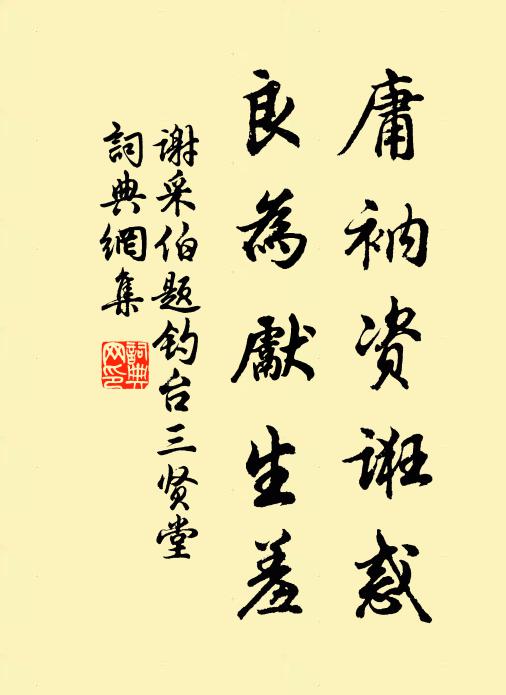 庸衲资诳惑
良為獻生羞
谢采伯题钓台三贤堂
詞典網集
詞典网印